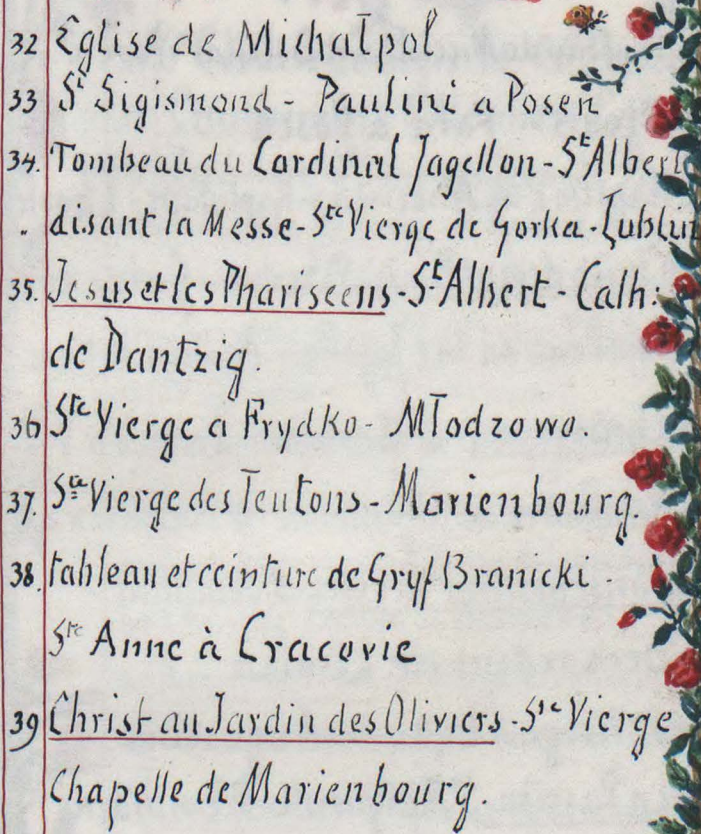 32 Église de Michałpol
33 St Sigismond - Paulini a Posen
34. Tombeau du Cardinal Jagellon - St Albert
" disant la Messe - Ste Vierge de Gorka - Lublin
35. Jesus et les Phariseens - St Albert - Cath:
de Dantzig.
36 Ste Vierge a Frydko - Młodzowo
37. Ste Vierge des Teutons - Marienbourg.
38. tableau et ceinture de Gryf Branicki -
Ste Anne à Cracovie
39 Christ au Jardin des Oliviers - Ste Vierge
Chapelle de Marienbourg.